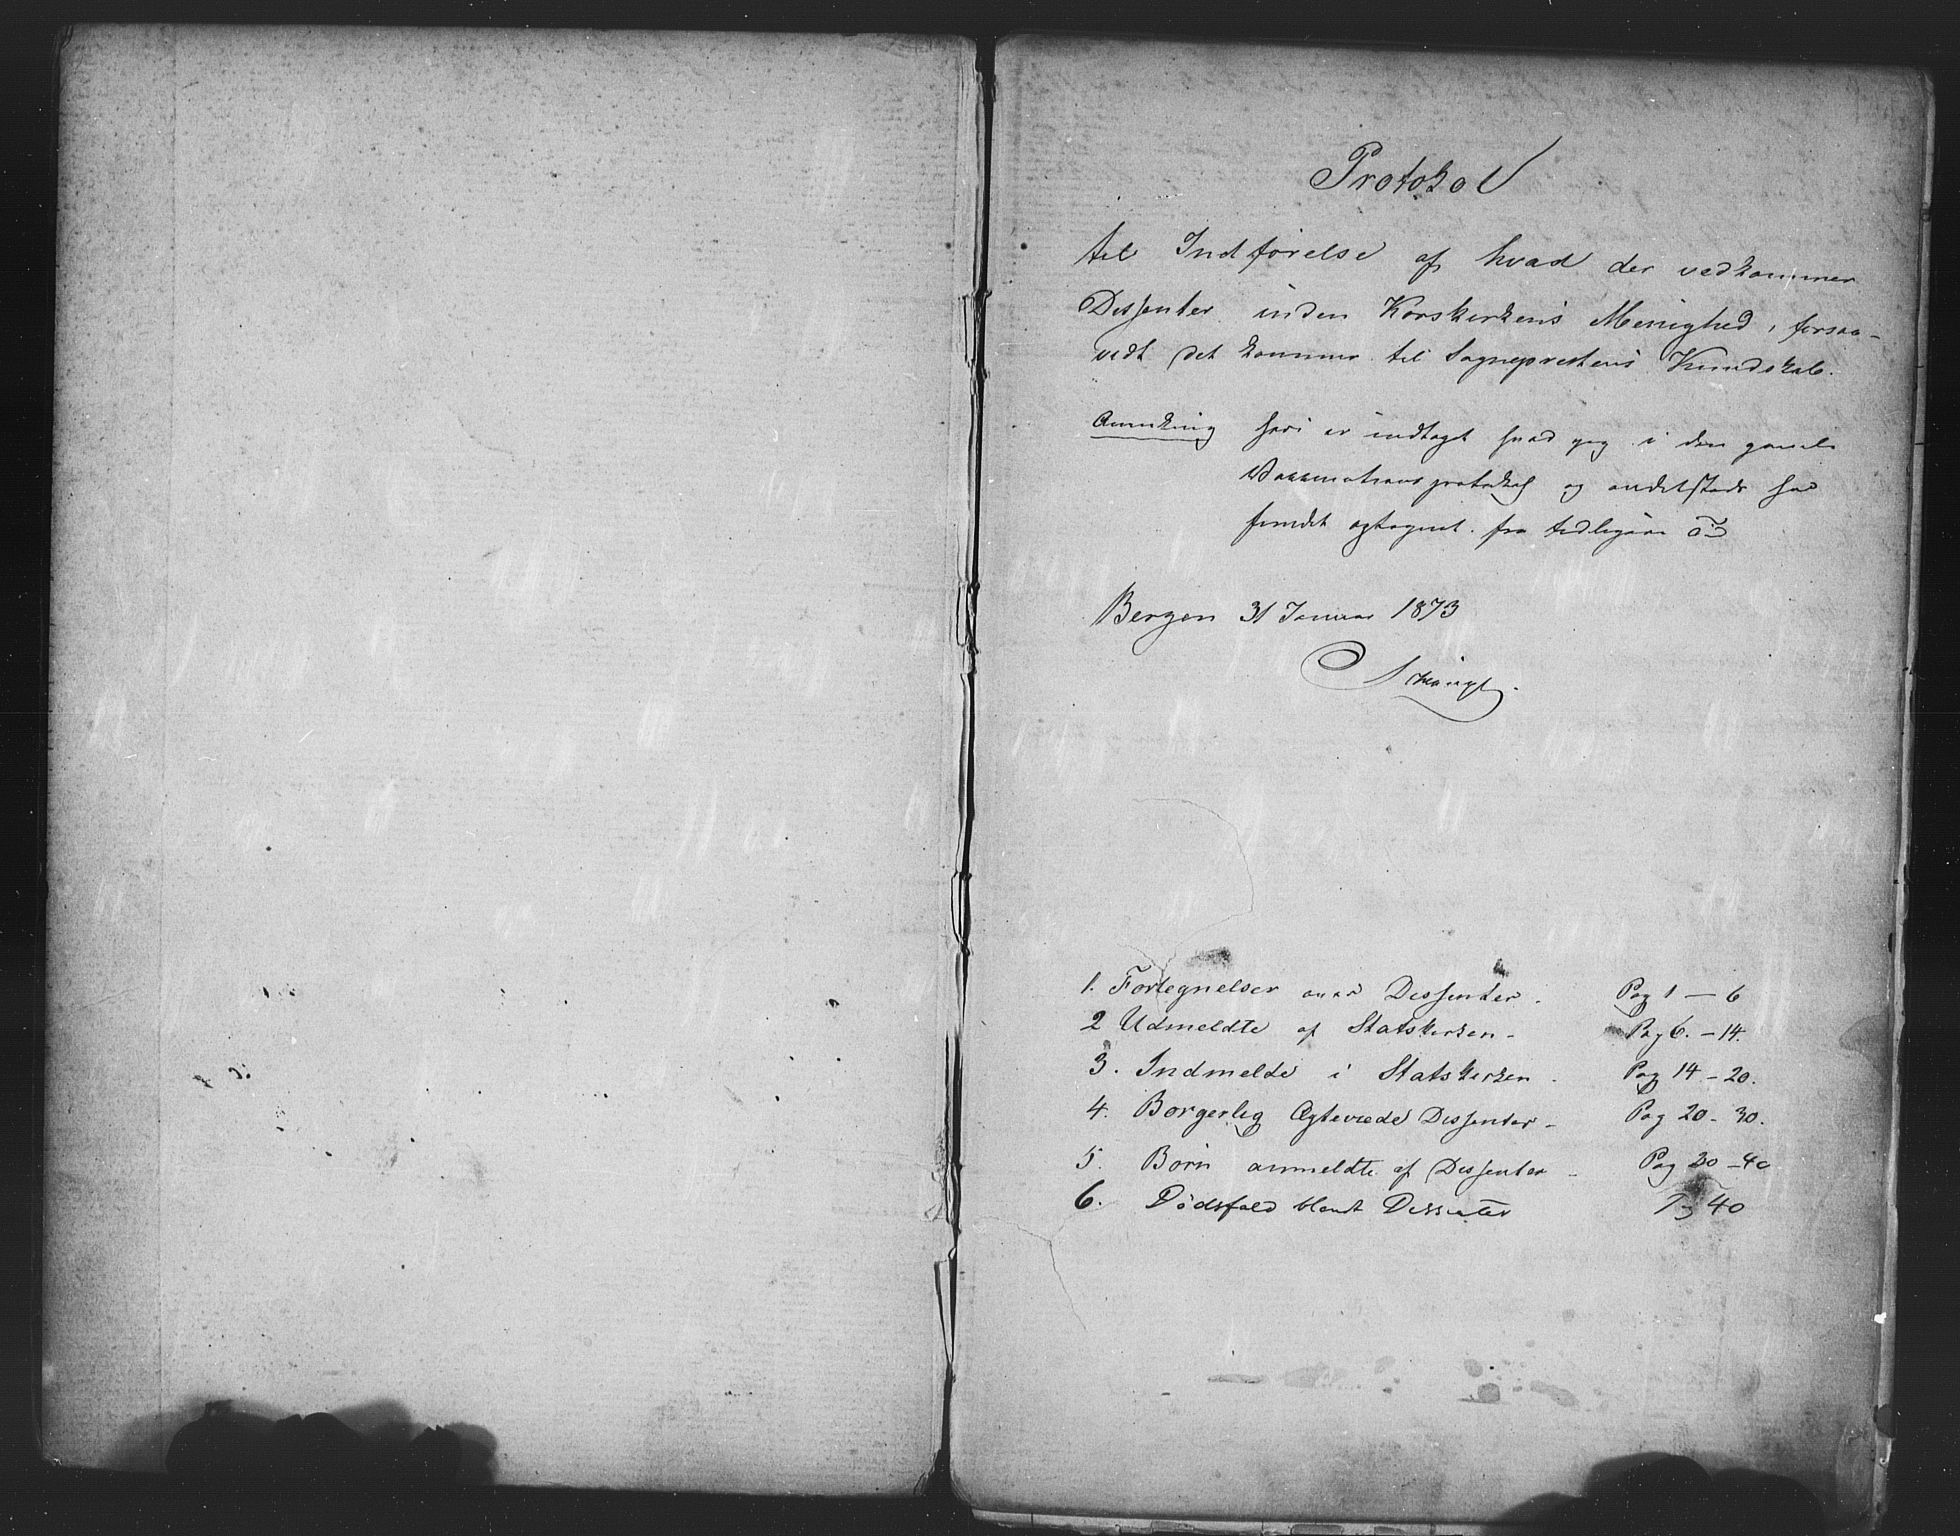 Protokol
til Indførelse af hvad der vedkommer
Dissenter inden Korskirkens Menighed, forsaa-
vidt det kommer til Sognepræstens Kundskab.
Anmerkning heri er indtaget hvad jeg i den gamle
Vaccinationsprotokol og andetsteds har
fundet optegnet fra tidligere Tid
Bergen 31 Januar 1873
1. Fortegnelser over Dissenter. Pag 1 - 6
2 Udmeldte af Statskirken - Pag 6. - 14.
3. Indmeldte i Statskirken. Pag 14 - 20.
4. Borgerlig Ægteviede Dissenter - Pag 20 - 30.
5. Børn anmeldte af Dissenter - Pag 30 - 40
6. Dødsfald blandt Dissenter Pag 40